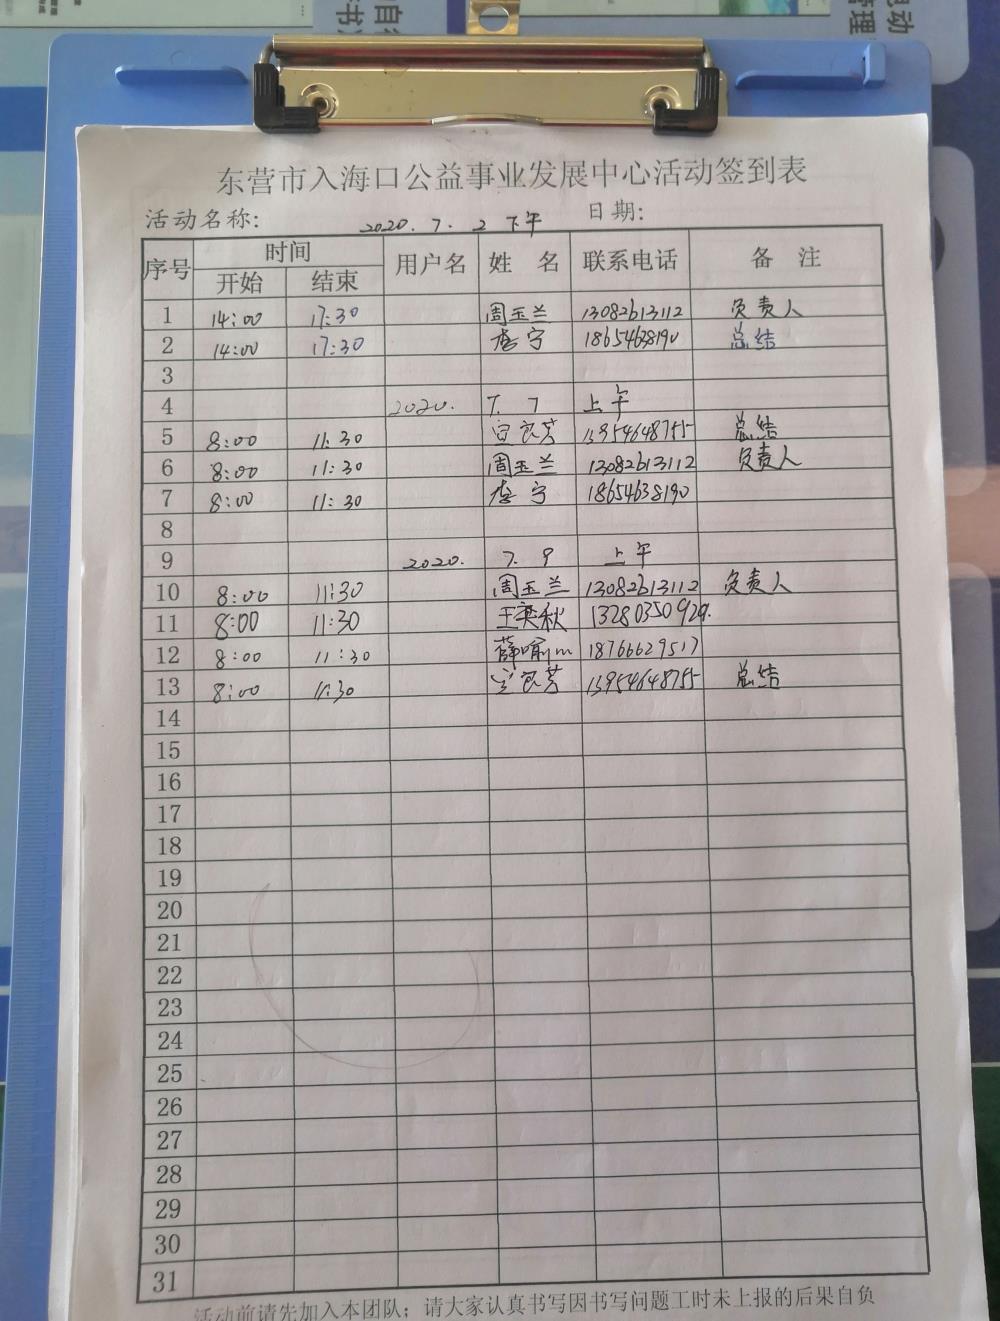 东营市入海口公益事业发展中心活动签到表
活动名称: 2020.7.2下午 日期:
序号 时间 用户名 姓 名 联系电话 备 注
开始 结束
1 14:00 17:30 周玉兰 13082613112 负责人
2 14:00 17:30 李宁 18654638190 总结
3
4 2020. 7. 7 上午
5 8:00 11:30 13954648755 总结
6 8:00 11:30 周玉兰 13082613112 负责人
7 8:00 11:30 李宁 18654638190
8
9 2020. 7. 9 上午
10 8:00 11:30 周玉兰 13082613112 负责人
11 8:00 11:30 王英秋 13280350929.
12 8:00 11:30 18766629517
13 8:00 11:30 13954648755 总结
14
15
16
17
18
19
20
21
22
23
24
25
26
27
28
29
30
31
活动前请先加入本团队；请大家认真书写因书写问题工时未上报的后果自负